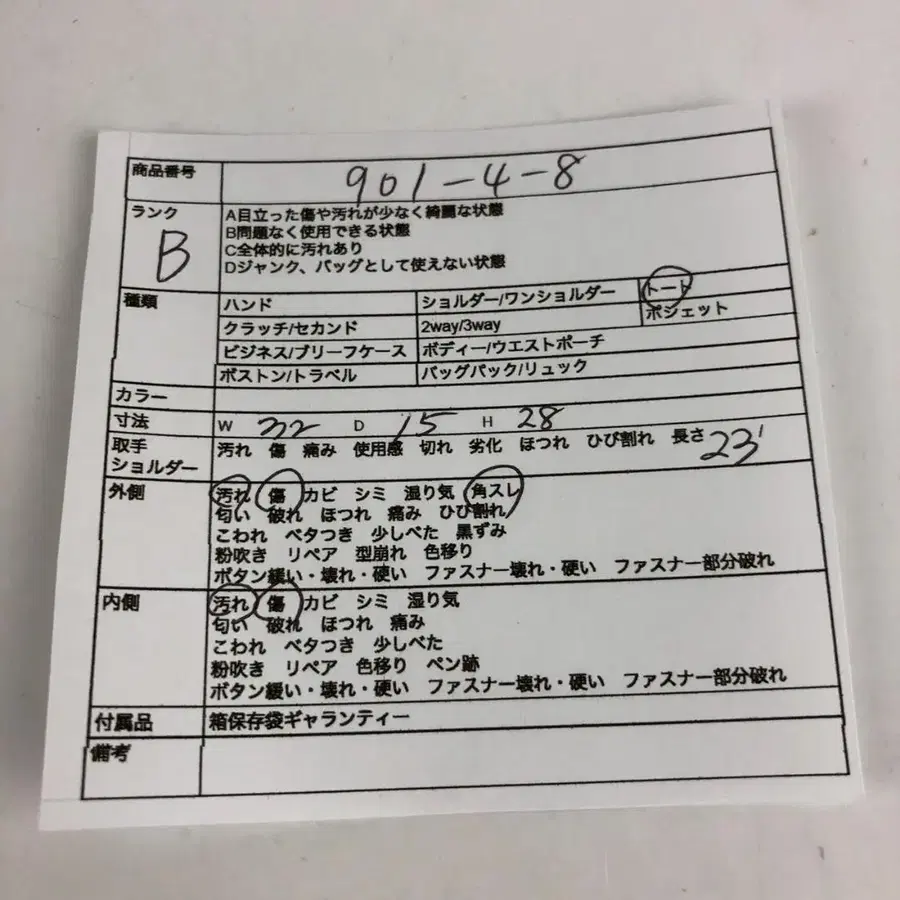 商品番号 901-4-8
ランク B
A目立った傷や汚れが少なく綺麗な状態
B問題なく使用できる状態
C全体的に汚れあり
Dジャンク、バッグとして使えない状態
種類 ハンド ショルダー/ワンショルダー トート
クラッチ/セカンド 2way/3way ポシェット
ビジネス/ブリーフケース ボディー/ウエストポーチ
ボストン/トラベル バッグパック/リュック
カラー
寸法 W 32 D 15 H 28
取手 汚れ 傷 痛み 使用感 切れ 劣化 ほつれ ひび割れ 長さ 23
ショルダー
外側 汚れ 傷 カビ シミ 湿り気 角スレ
匂い 破れ ほつれ 痛み ひび割れ
こわれ ベタつき 少しべた 黒ずみ
粉吹き リペア 型崩れ 色移り
ボタン緩い・壊れ・硬い ファスナー壊れ・硬い ファスナー部分破れ
内側 汚れ 傷 カビ シミ 湿り気
匂い 破れ ほつれ 痛み
こわれ ベタつき 少しべた
粉吹き リペア 色移り ペン跡
ボタン緩い・壊れ・硬い ファスナー壊れ・硬い ファスナー部分破れ
付属品 箱保存袋ギャランティー
備考